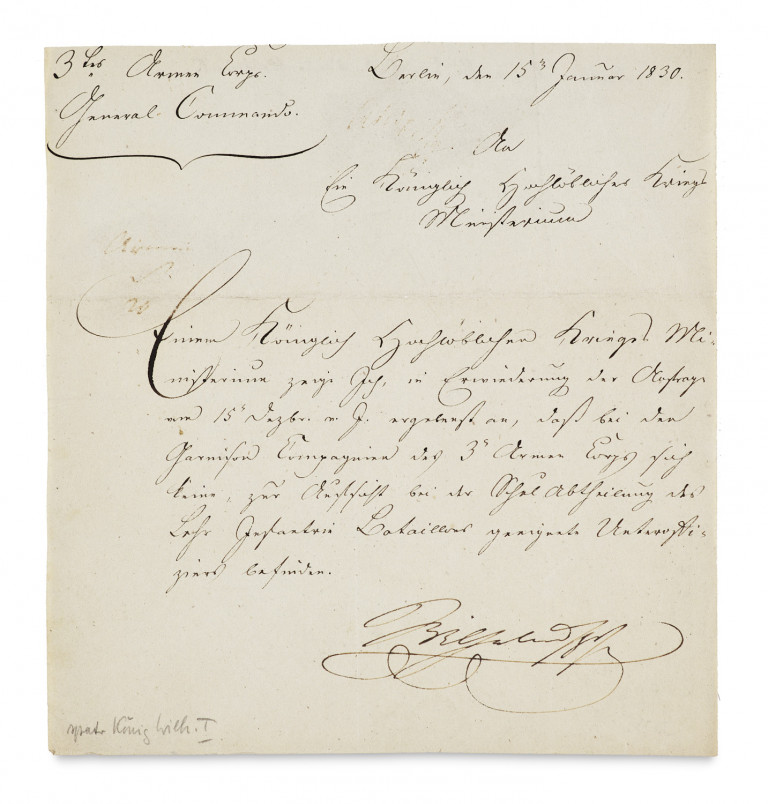 3tes Armee Corps.
General-Commando.
Berlin, den 15n Januar 1830.
An
Ein Königlich Hochlöbliches Kriegs
Ministerium
Einem Königlich Hochlöblichen Kriegs-Mi-
nisterium zeige Ich, in Erwiederung der Anfrage
vom 15n Dezbr. v. J. ergebenst an, daß bei den
Garnison Compagnien des 3n Armee Corps sich
keine, zur Aufsicht bei der Schul Abtheilung des
Lehr Infanterie Bataillons geeignete Unteroffi-
ziere befinden.
Wilhelm
später König Wilh. I